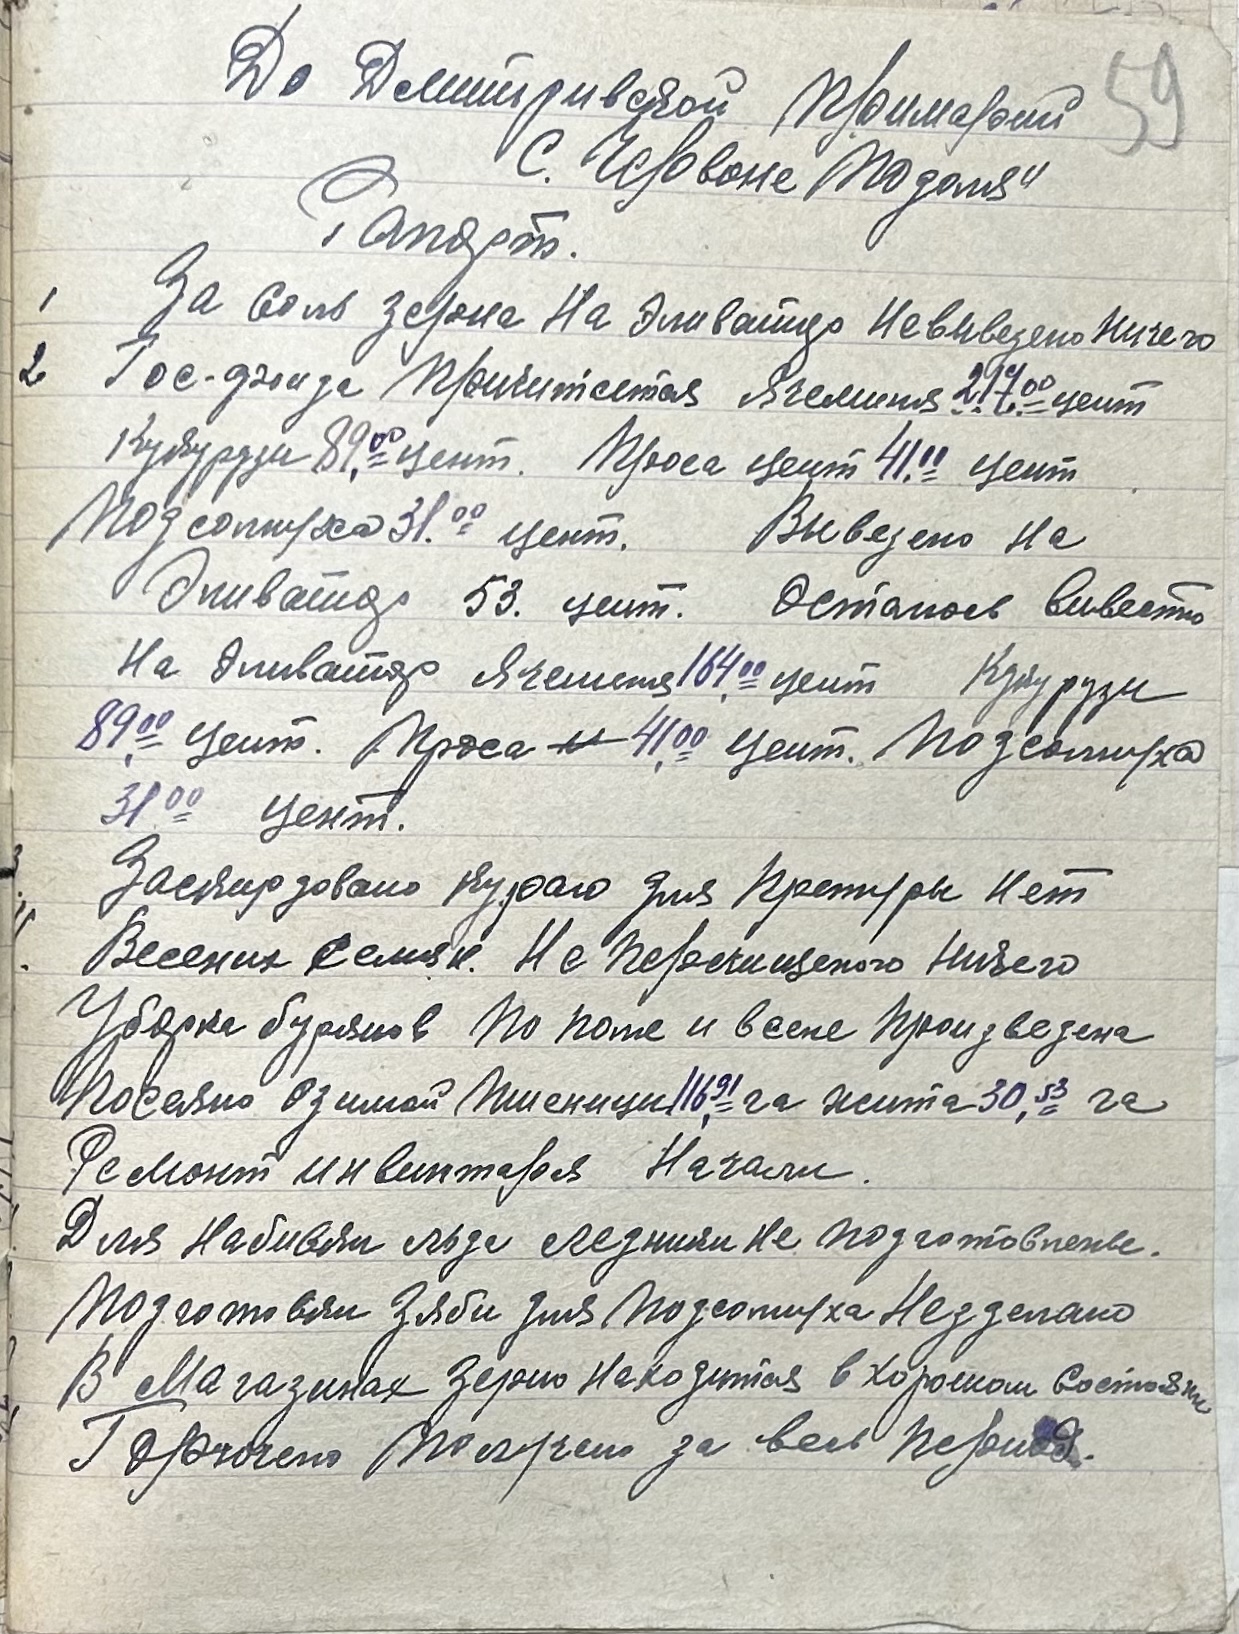 59
До Дмитривской Примарии
с. Червоне Подоля"
Рапорт.
1 За соль зерна на Эливатор невывезено ничего
2. Гос-фонда Причитается Ячменя 217,00 цент
Кукурузи 89,00 цент. Проса цент 41,00 цент
Подсолнуха 31.00 цент. Вывезено на
Эливатор 53. цент. Осталось вивести
на Эливатор Ячменя 164,00 цент Кукурузи
89,00 цент. Проса 41,00 цент. Подсолнуха
31 00 цент.
Заскирдовано кураю для Претуры нет
Весених Семян. Не Перечищеного ничего
Уборка бурянов по поле и в селе произведена
Посеяно Озимой Пшеници 116,91 га жита 30,53 га
Ремонт инвинтаря Начали.
Для набивки льда ледники не подготовлены.
Подготовки Зяби для Подсолнуха Незделано
В Магазинах Зерно находится в хорошом состояни
Горючего Получено за весь Период.